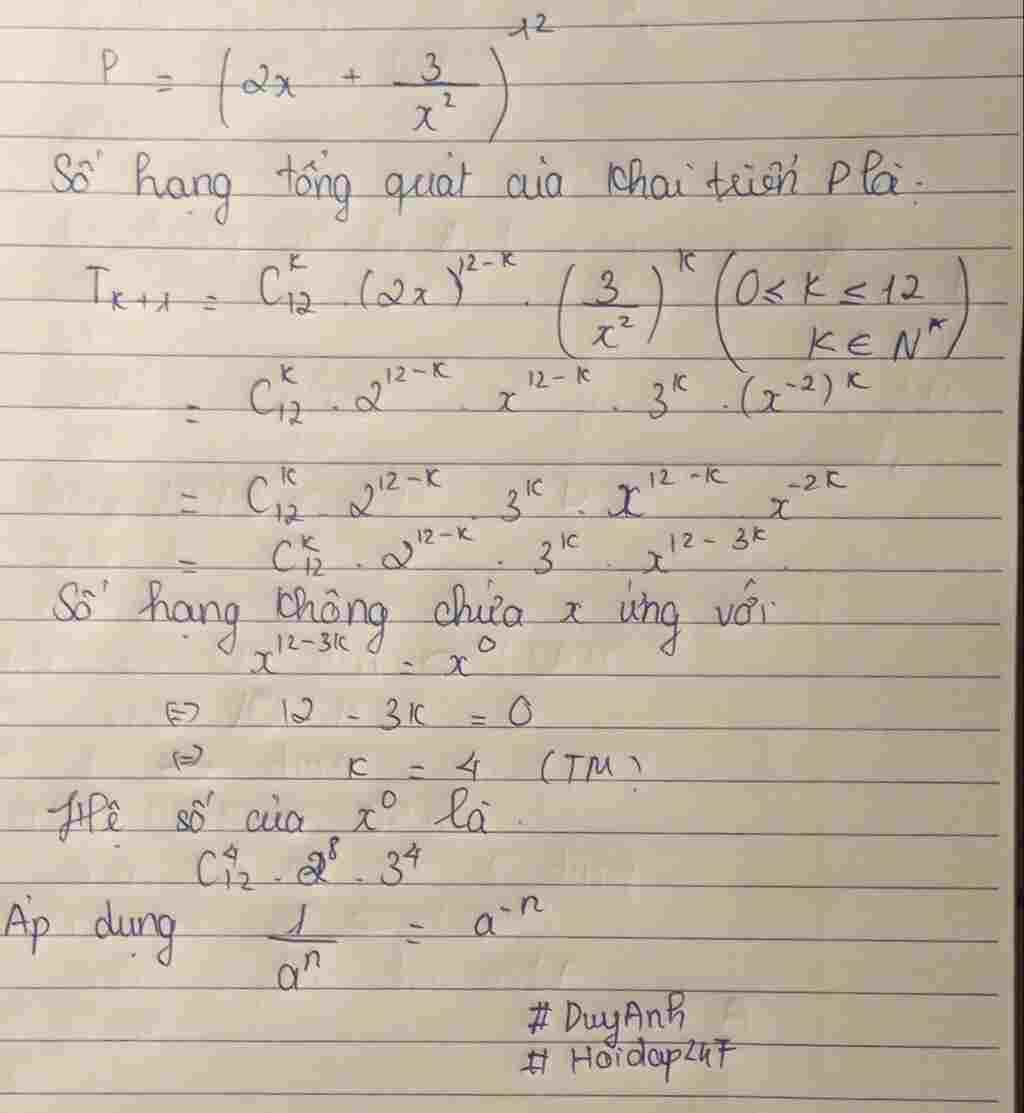 P = (2x + 3/x²)¹²
Số hạng tổng quát của khai triển P là:
Tₖ₊₁ = C₁₂ᵏ . (2x)¹²⁻ᵏ . (3/x²)ᵏ (0 ≤ k ≤ 12
k ∈ N*)
= C₁₂ᵏ . 2¹²⁻ᵏ . x¹²⁻ᵏ . 3ᵏ . (x⁻²)ᵏ
= C₁₂ᵏ . 2¹²⁻ᵏ 3ᵏ . x¹²⁻ᵏ x⁻²ᵏ
= C₁₂ᵏ . 2¹²⁻ᵏ . 3ᵏ . x¹²⁻³ᵏ.
Số hạng không chứa x ứng với
x¹²⁻³ᵏ = x⁰
⇔ 12 - 3k = 0
⇔ k = 4 (TM)
Hệ số của x⁰ là.
C₁₂⁴ . 2⁸ . 3⁴
Áp dụng 1/aⁿ = a⁻ⁿ
# DuyAnh
# Hoidap247